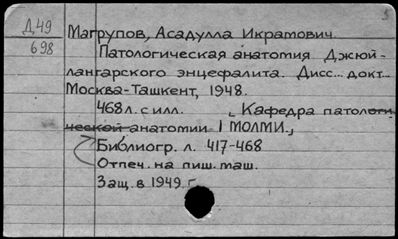 Д 49
698
Магрупов, Асадулла Икрамович.
Патологическая анатомия Джюй-
лангарского энцефалита. Дисс... докт...
Москва-Ташкент, 1948.
468 л. с илл. Кафедра патологи-
ческой анатомии I МОЛМИ.,
Библиогр. л. 417-468
Отпеч. на пиш. маш.
Защ. в 1949 г.